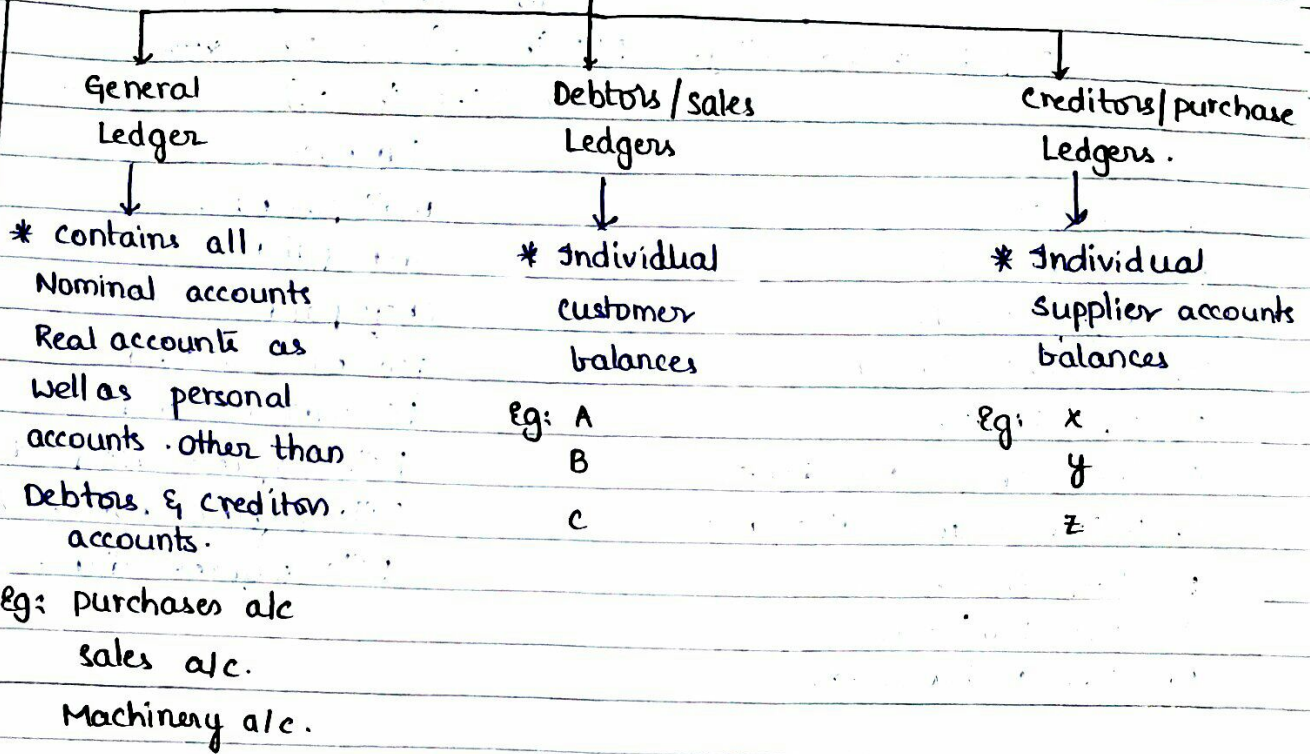 General
Ledger
* contains all.
Nominal accounts
Real accounts as
well as personal
accounts . other than
Debtors. & creditors.
accounts.
Eg: purchases a/c
sales a/c.
Machinery a/c.
Debtors / sales
Ledgers
* Individual
customer
balances
Eg: A
B
C
Creditors/purchase
Ledgers.
* Individual
supplier accounts
balances
Eg: x
y
z